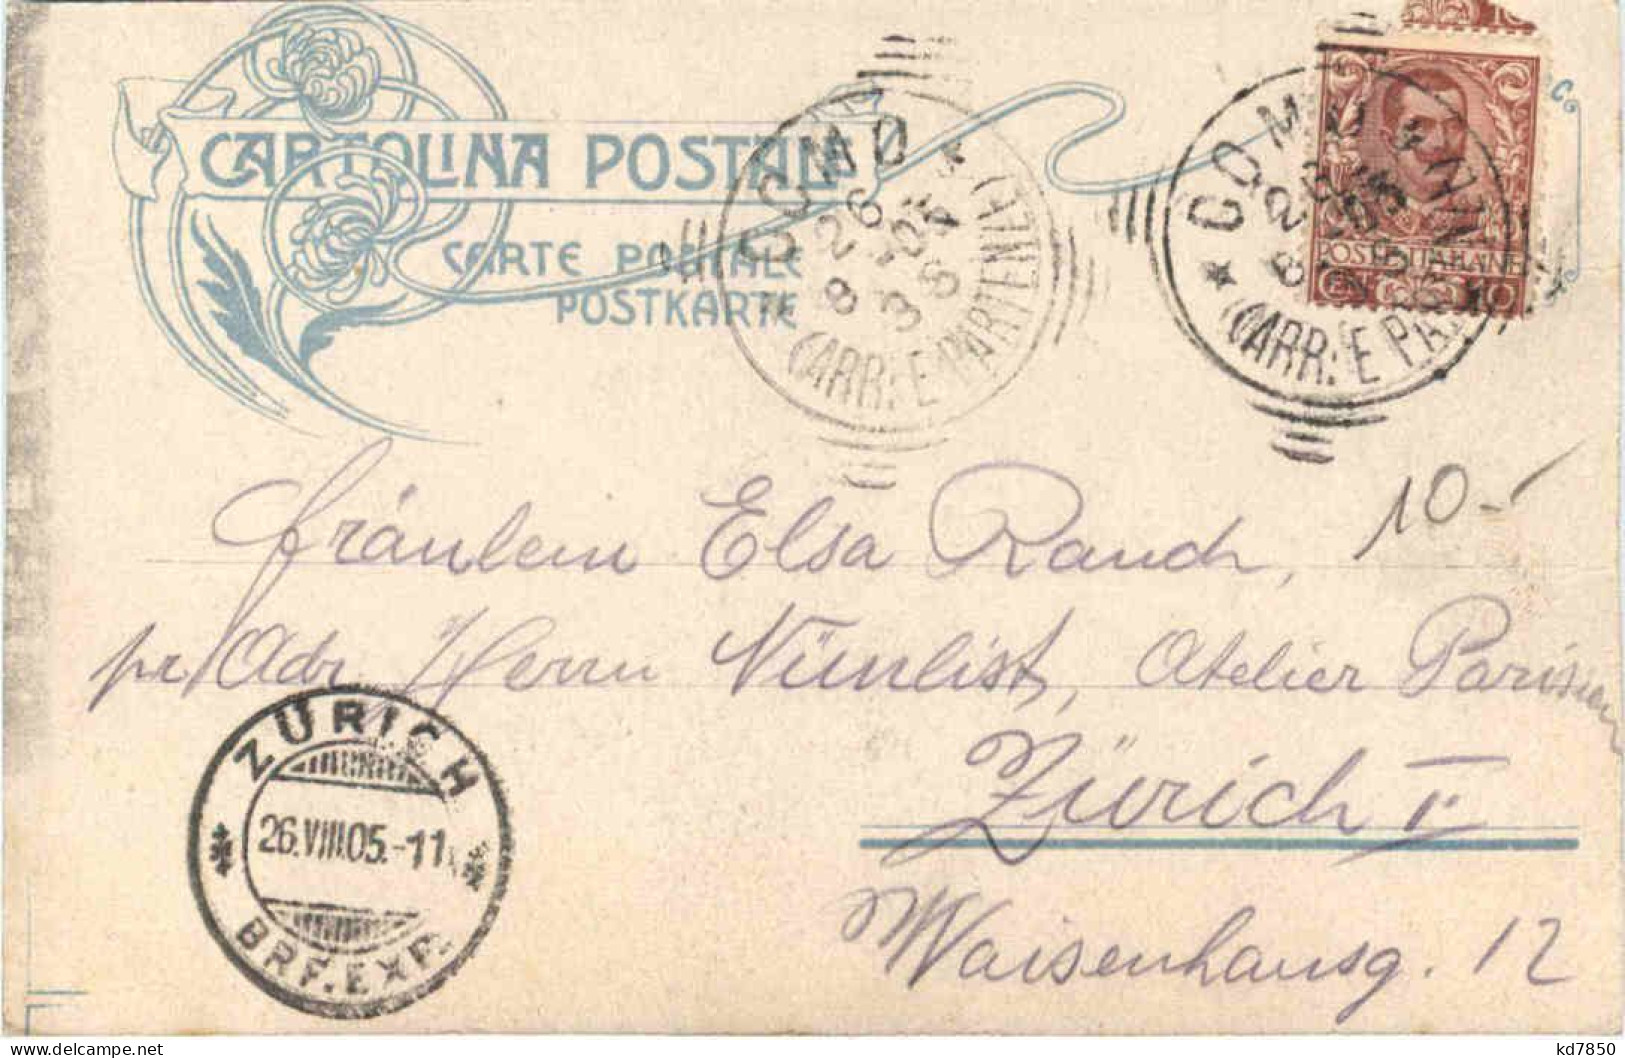 CARTOLINA POSTALE
CARTE POSTALE
POSTKARTE
COMO
26 8 05
8 S
(ARR. E PARTENZA)
COMO
(ARR. E PA
POSTE ITALIANE
10
10.-
Fräulein Elsa Rauch,
pr. Adr. Herrn Nünlist, Atelier Parisien
Zürich I
Waisenhausg. 12
ZÜRICH
26.VIII.05.-11
BRF.EXP.
kd7850